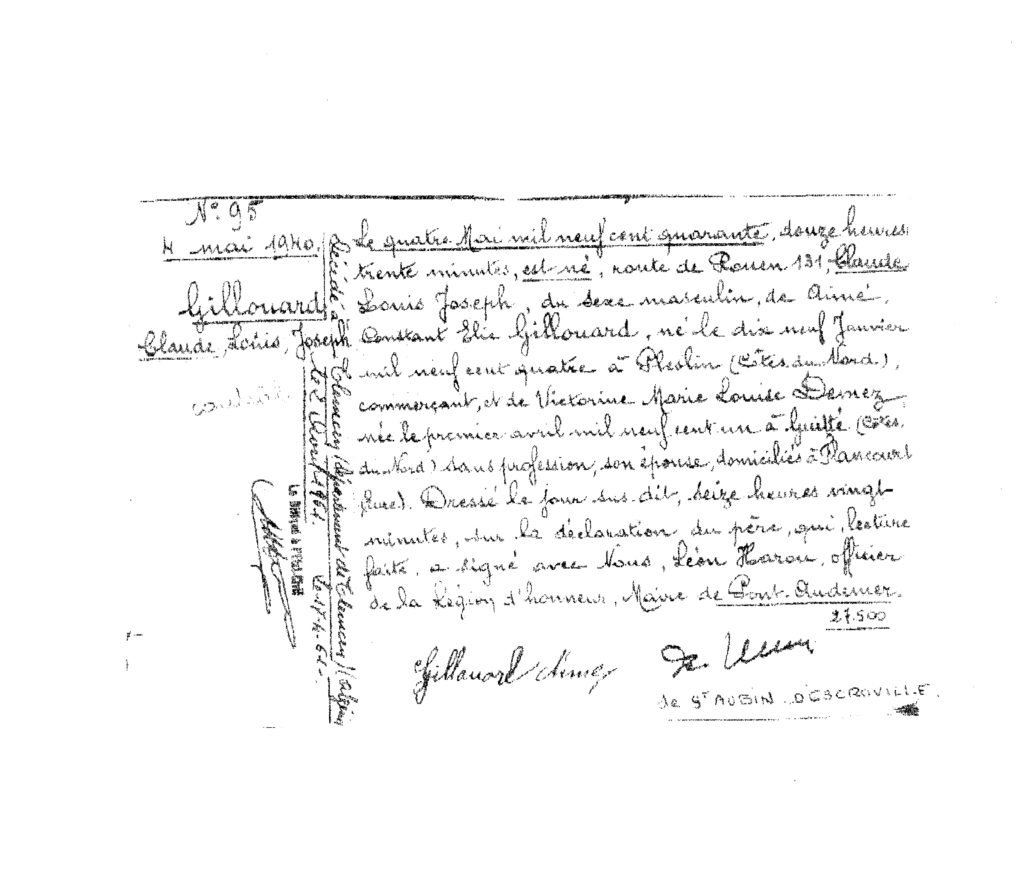 N° 95
4 mai 1940.
Gillouard
Claude, Louis, Joseph
Décédé à Tlemcen (département de Tlemcen) (Algérie)
le 2 Avril 1961. Le 17-4-61-
Le Délégué à l'Etat-Civil
Le quatre Mai mil neuf cent quarante, douze heures
trente minutes, est né, route de Rouen 131, Claude
Louis Joseph, du sexe masculin, de Aimé,
Constant Elie Gillouard, né le dix neuf Janvier
mil neuf cent quatre à Pleslin (Côtes du Nord),
commerçant, et de Victorine Marie Louise Demez
née le premier avril mil neuf cent un à Guitté (Côtes.
du Nord) sans profession, son épouse, domiciliés à
(Eure). Dressé le jour sus dit, seize heures vingt
minutes, sur la déclaration du père, qui, lecture
faite, a signé avec Nous, Léon Harou, officier
de la Légion d'honneur, Maire de Pont-Audemer.
27.500
Gillouard Aimé
de ST AUBIN D'ESCROVILLE.